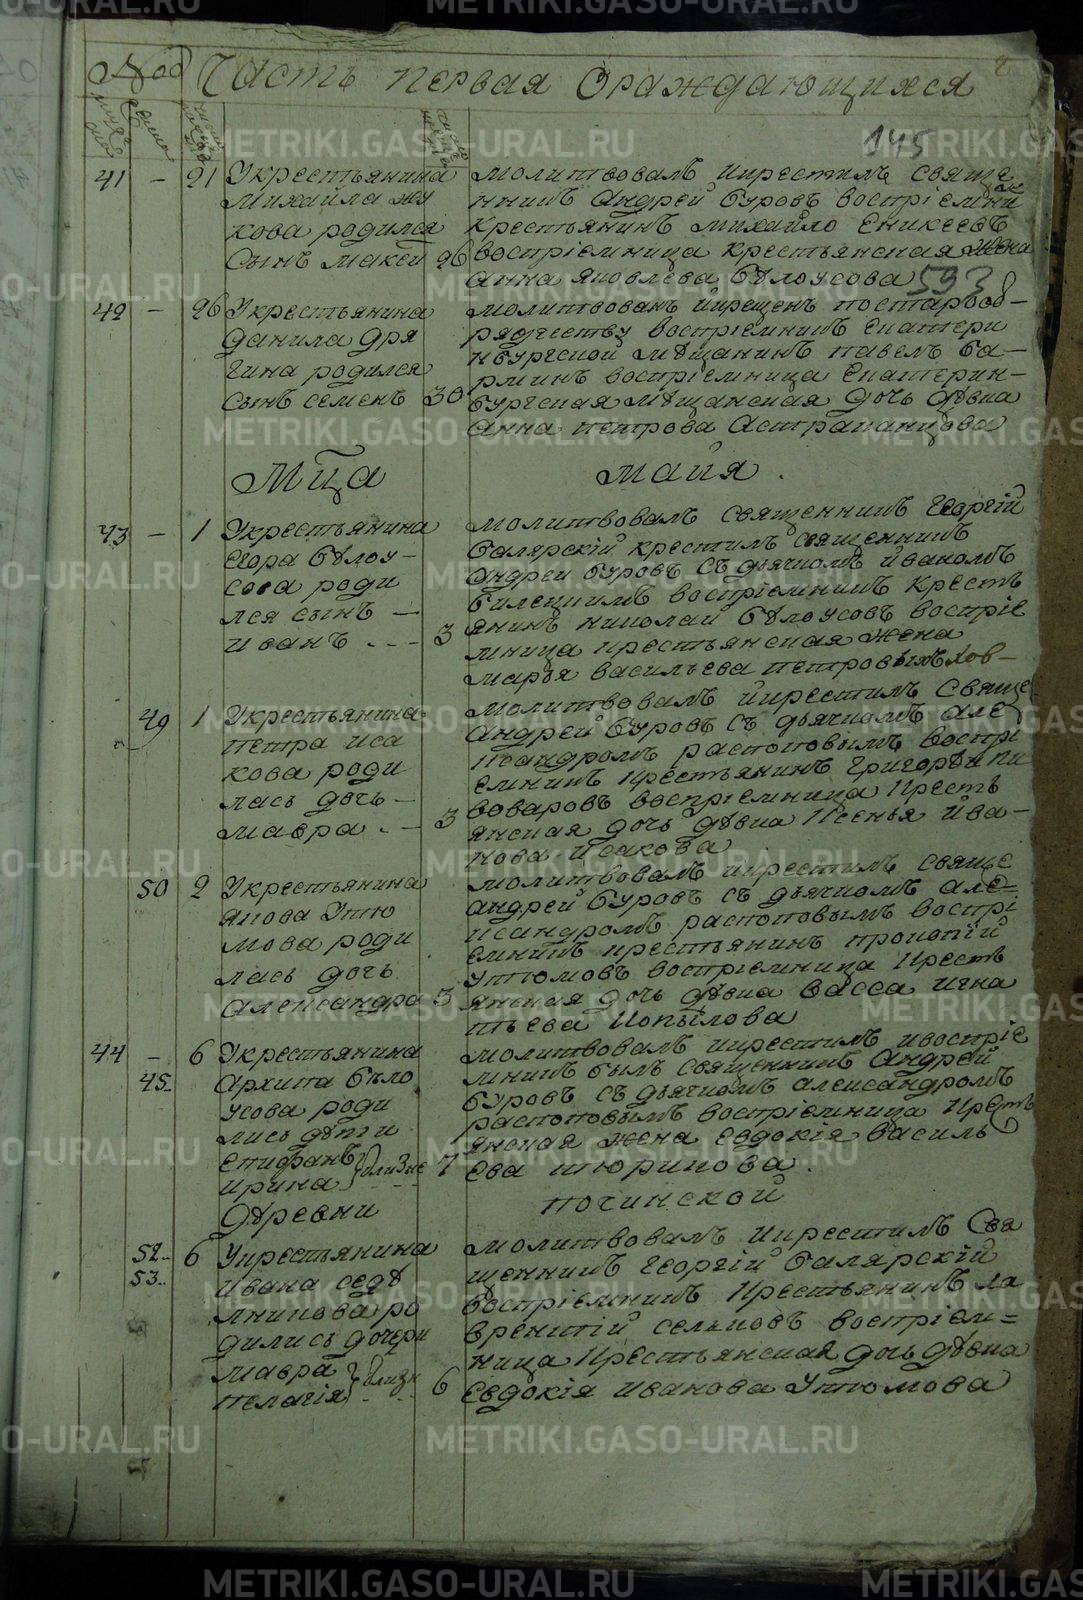 Часть первая о раждающихся
145
41 — 21 У крестьянина
Михайла Жу
кова родился
Сынъ Максим 26
Молитвовалъ и крестилъ Свяще
нникъ Андрей Буровъ воспріемни
Крестьянинъ Михайло Еникеевъ
воспріемница крестьянская жена
Анна Яковлева Бѣлоусова
593
42 — 26 У крестьянина
Данила Дря
гина родился
Сынъ Семенъ 30
Молитвованъ и крещенъ по старооб-
рядчеству воспріемникъ Екатери
нбургской мѣщанинъ Павелъ Ба-
рминъ воспріемница Екатерин-
бургская мѣщанская дочь дѣвка
Анна Петрова Астраханцова
Мца Майя.
43 — 1 У крестьянина
Егора Бѣлоу-
сова роди
лся сынъ —
Иванъ . - - 3
Молитвовалъ священникъ Георгій
Балярскій крестилъ священникъ
Андрей Буровъ съ дьячкомъ Иваномъ
воспріемникъ кресть
янинъ Николай Бѣлоусовъ воспріе
мница крестьянская жена
Марья Васильева
49 1 У крестьянина
Петра Иса
кова роди
лась дочь —
Мавра . — 3
Молитвовалъ и крестилъ Свяще
Андрей Буровъ съ дьячкомъ Але
ксандромъ Распоповымъ воспрі
емникъ крестьянинъ Григорьи Пи
воваровъ воспріемница кресть
янская дочь дѣвка Ксенья Ива-
нова Исакова
50 2 У крестьянина
Якова Утю
мова роди
лась дочь
Александра 3
Молитвовалъ и крестилъ свяще
Андрей Буровъ съ дьячкомъ Але=
ксандромъ Распоповымъ воспрі
емникъ крестьянинъ Прокопій
Утюмовъ воспріемница кресть
янская дочь дѣвка Васса Игна
тьева Копылова
44 — 6 У крестьянина
45 Архипа Бѣло
усова роди
лись дѣти
Епифанъ
Ирина } близне 7
Молитвовалъ и крестилъ и воспріе
мникъ былъ священникъ Андрей
Буровъ съ дьячкомъ Александромъ
Распоповымъ воспріемница крестъ
янская жена Евдокія Василь
ева Тюрикова.
Дѣревни Починской
52 6 У крестьянина
53 Ивана Седѣ
лникова ро
дились дочери
Мавра
Пелагія } близн 6
Молитвовалъ и крестилъ Свя
щенникъ Георгій Балярскій
воспріемникъ крестьянинъ Ла
врентій Селковъ воспріем=
ница крестьянская дочь дѣвка
Евдокія Иванова Утюмова
METRIKI.GASO-URAL.RU